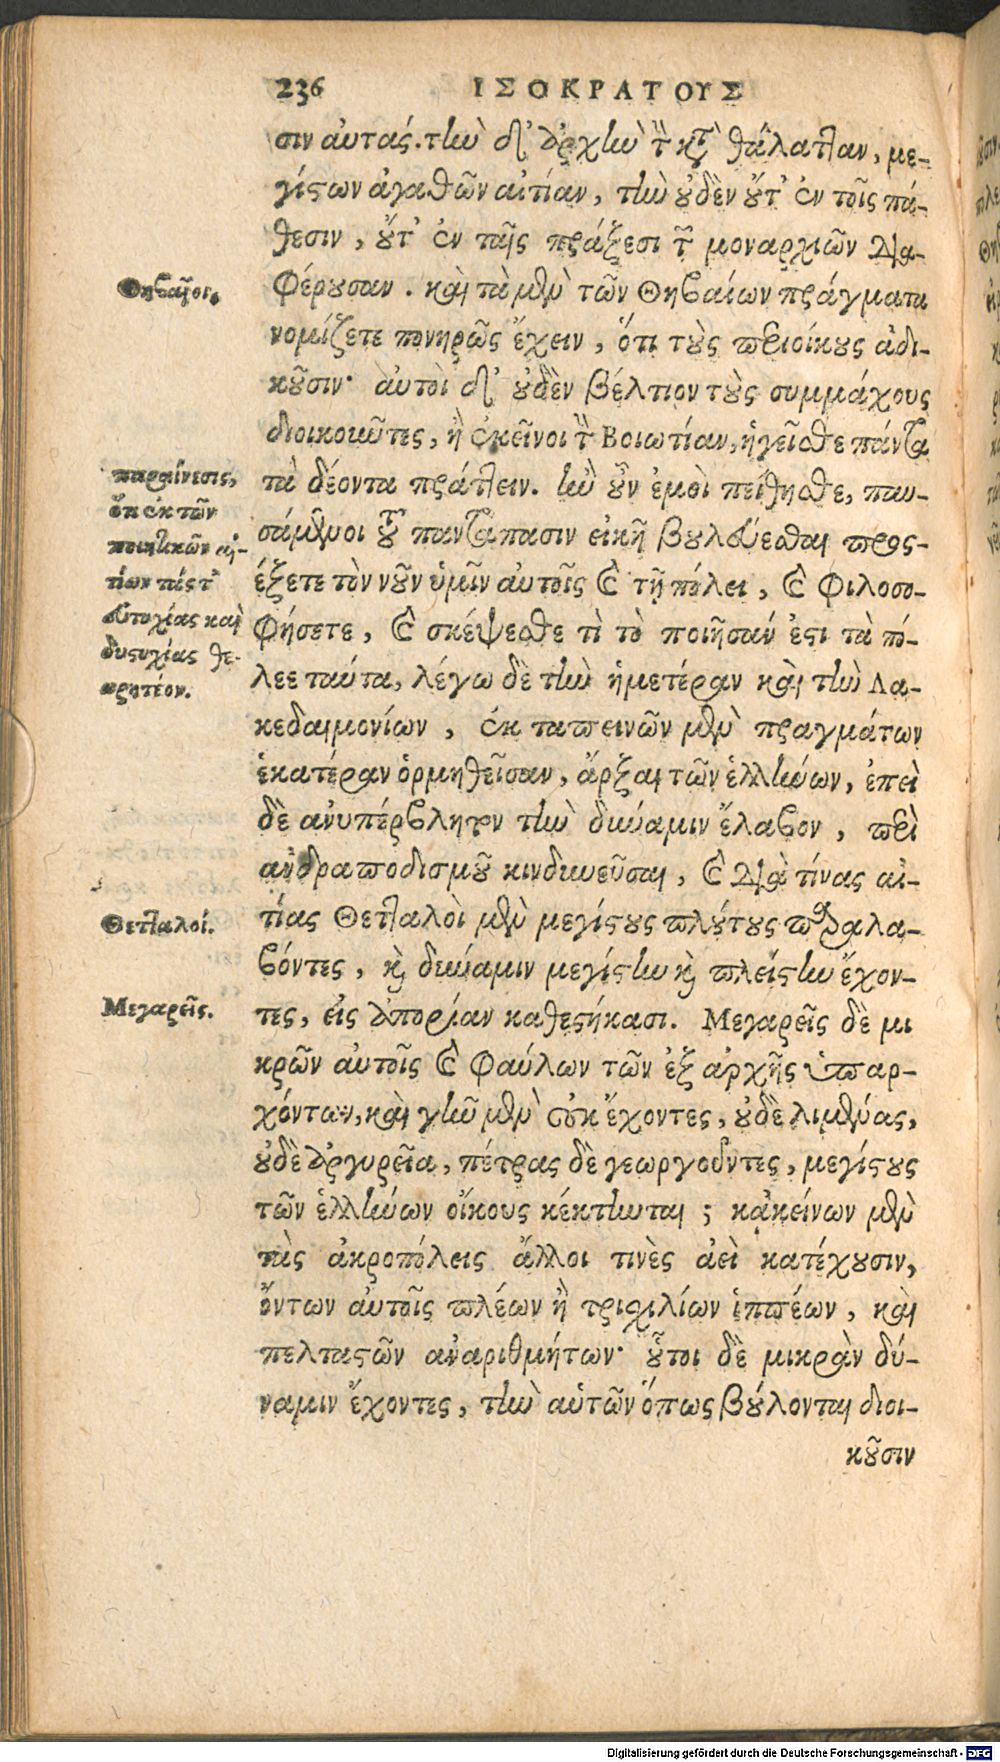 236 ΙΣΟΚΡΑΤΟΥΣ
σιν αὐτάς. τὴν δ' ἀρχὴν τὴν κατὰ θάλατταν, με-
γίστων ἀγαθῶν αἰτίαν, τὴν οὐδὲν οὔτ' ἐν τοῖς πά-
θεσιν, οὔτ' ἐν ταῖς πράξεσι τῶν μοναρχιῶν δια-
Θηβαῖοι.
φέρουσαν. καὶ τὰ μὲν τῶν Θηβαίων πράγματα
νομίζετε πονηρῶς ἔχειν, ὅτι τοὺς περιοίκους ἀδι-
κοῦσιν· αὐτοὶ δ' οὐδὲν βέλτιον τοὺς συμμάχους
διοικοῦντες, ἢ ἐκεῖνοι τὴν Βοιωτίαν, ἡγεῖσθε πάντα
παραίνεσις,
ὅτι ἐκ τῶν
ποιητικῶν αἰ-
τίων τὰς τ'
εὐτυχίας καὶ
δυστυχίας θε-
ωρητέον.
τὰ δέοντα πράττειν. ἢν οὖν ἐμοὶ πείθησθε, παυ-
σάμενοι τοῦ παντάπασιν εἰκῆ βουλεύεσθαι προς-
έξετε τὸν νοῦν ὑμῖν αὐτοῖς καὶ τῇ πόλει, καὶ φιλοσο-
φήσετε, καὶ σκέψεσθε τὶ τὸ ποιῆσάν ἐστι τὰ πό-
λεε ταύτα, λέγω δὲ τὴν ἡμετέραν καὶ τὴν Λα-
κεδαιμονίων, ἐκ ταπεινῶν μὲν πραγμάτων
ἑκατέραν ὁρμηθεῖσαν, ἄρξαι τῶν ἑλλήνων, ἐπεὶ
δὲ ἀνυπέρβλητον τὴν δύναμιν ἔλαβον, περὶ
ἀνδραποδισμοῦ κινδυνεῦσαι, καὶ διὰ τίνας αἰ-
Θετταλοί.
τίας Θετταλοὶ μὲν μεγίστους πλούτους παραλα-
βόντες, καὶ δύναμιν μεγίστην καὶ πλείστην ἔχον-
Μεγαρεῖς.
τες, εἰς ἀπορίαν καθεστήκασι. Μεγαρεῖς δὲ μι
κρῶν αὐτοῖς καὶ φαύλων τῶν ἐξ ἀρχῆς ὑπαρ-
χόντων, καὶ γῆν μὲν οὐκ ἔχοντες, οὐδὲ λιμένας,
οὐδὲ ἀργυρεῖα, πέτρας δὲ γεωργοῦντες, μεγίστους
τῶν ἑλλήνων οἴκους κέκτηνται; κἀκείνων μὲν
τὰς ἀκροπόλεις ἄλλοι τινὲς ἀεὶ κατέχουσιν,
ὄντων αὐτοῖς πλέων ἢ τρισχιλίων ἱππέων, καὶ
πελταστῶν ἀναριθμήτων· οὗτοι δὲ μικρὰν δύ-
ναμιν ἔχοντες, τὴν αὑτῶν ὅπως βούλονται διοι-
κοῦσιν
Digitalisierung gefördert durch die Deutsche Forschungsgemeinschaft - DFG